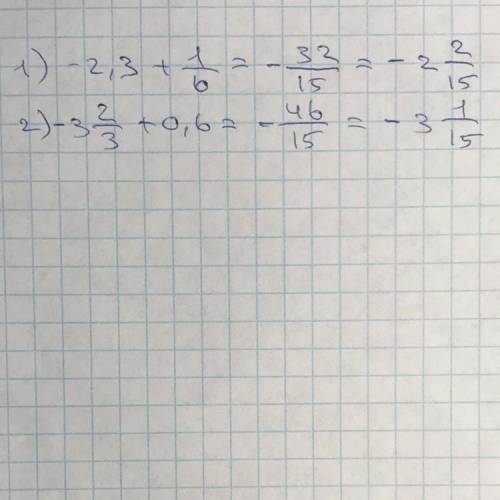 1) -2,3 + 1/6 = - 32/15 = - 2 2/15
2) -3 2/3 + 0,6 = - 46/15 = - 3 1/15